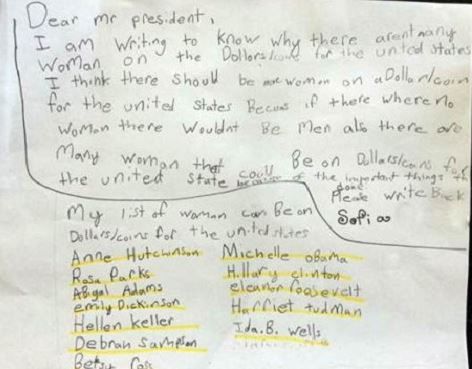 Dear mr president,
I am writing to know why there arent many
woman on the Dollars/coins for the united states
I think there should be more women on a Dollar/coin
for the united states Becuas if there where no
woman there wouldnt Be men als there are
Many woman that could Be on Dollars/coins for
the united state because of the important things th
done
Please write Back
Sofia
My list of woman can Be on
Dollars/coins for the united states
Anne Hutchinson
Rosa Parks
Abigal Adams
emily Dickinson
Hellen keller
Debrah Sampson
Betsy Ross
Michelle obama
Hillary clinton
eleanor roosevelt
Harriet tudman
Ida. B. wells